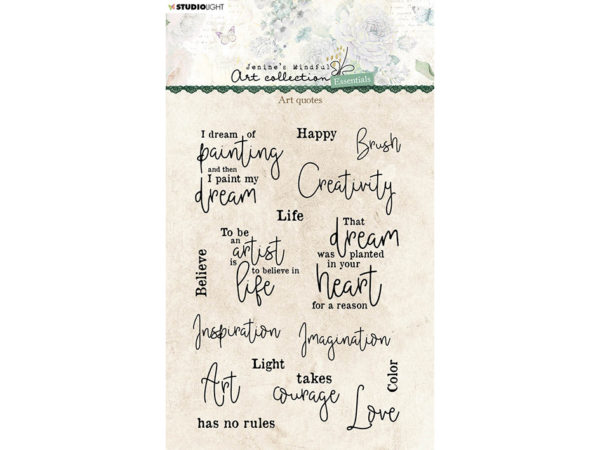 STUDIOLIGHT
Jenine's Mindful
Art collection
Essentials
Art quotes
I dream of
painting
and then
I paint my
dream
Happy
Brush
Creativity
Life
To be
an
artist
is
to believe in
life
That
dream
was planted
in your
heart
for a reason
Believe
Inspiration
Imagination
Light
Color
Art
takes
courage
Love
has no rules